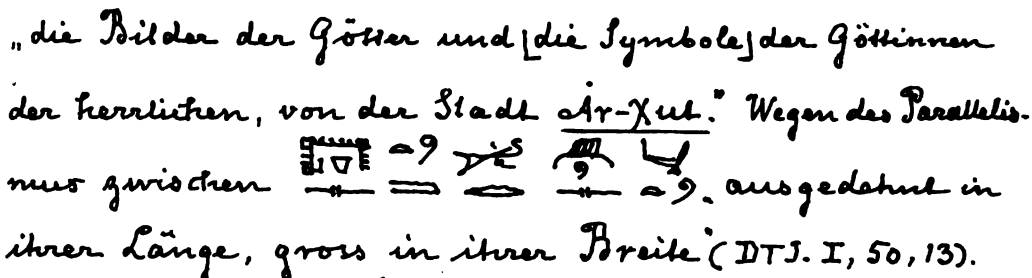 „die Bilder der Götter und [die Symbole] der Göttinnen
der herrlichen, von der Stadt Ȧr-χut.“ Wegen des Parallelis-
mus zwischen ausgedehnt in
ihrer Länge, gross in ihrer Breite“ (DTJ. I, 50, 13).